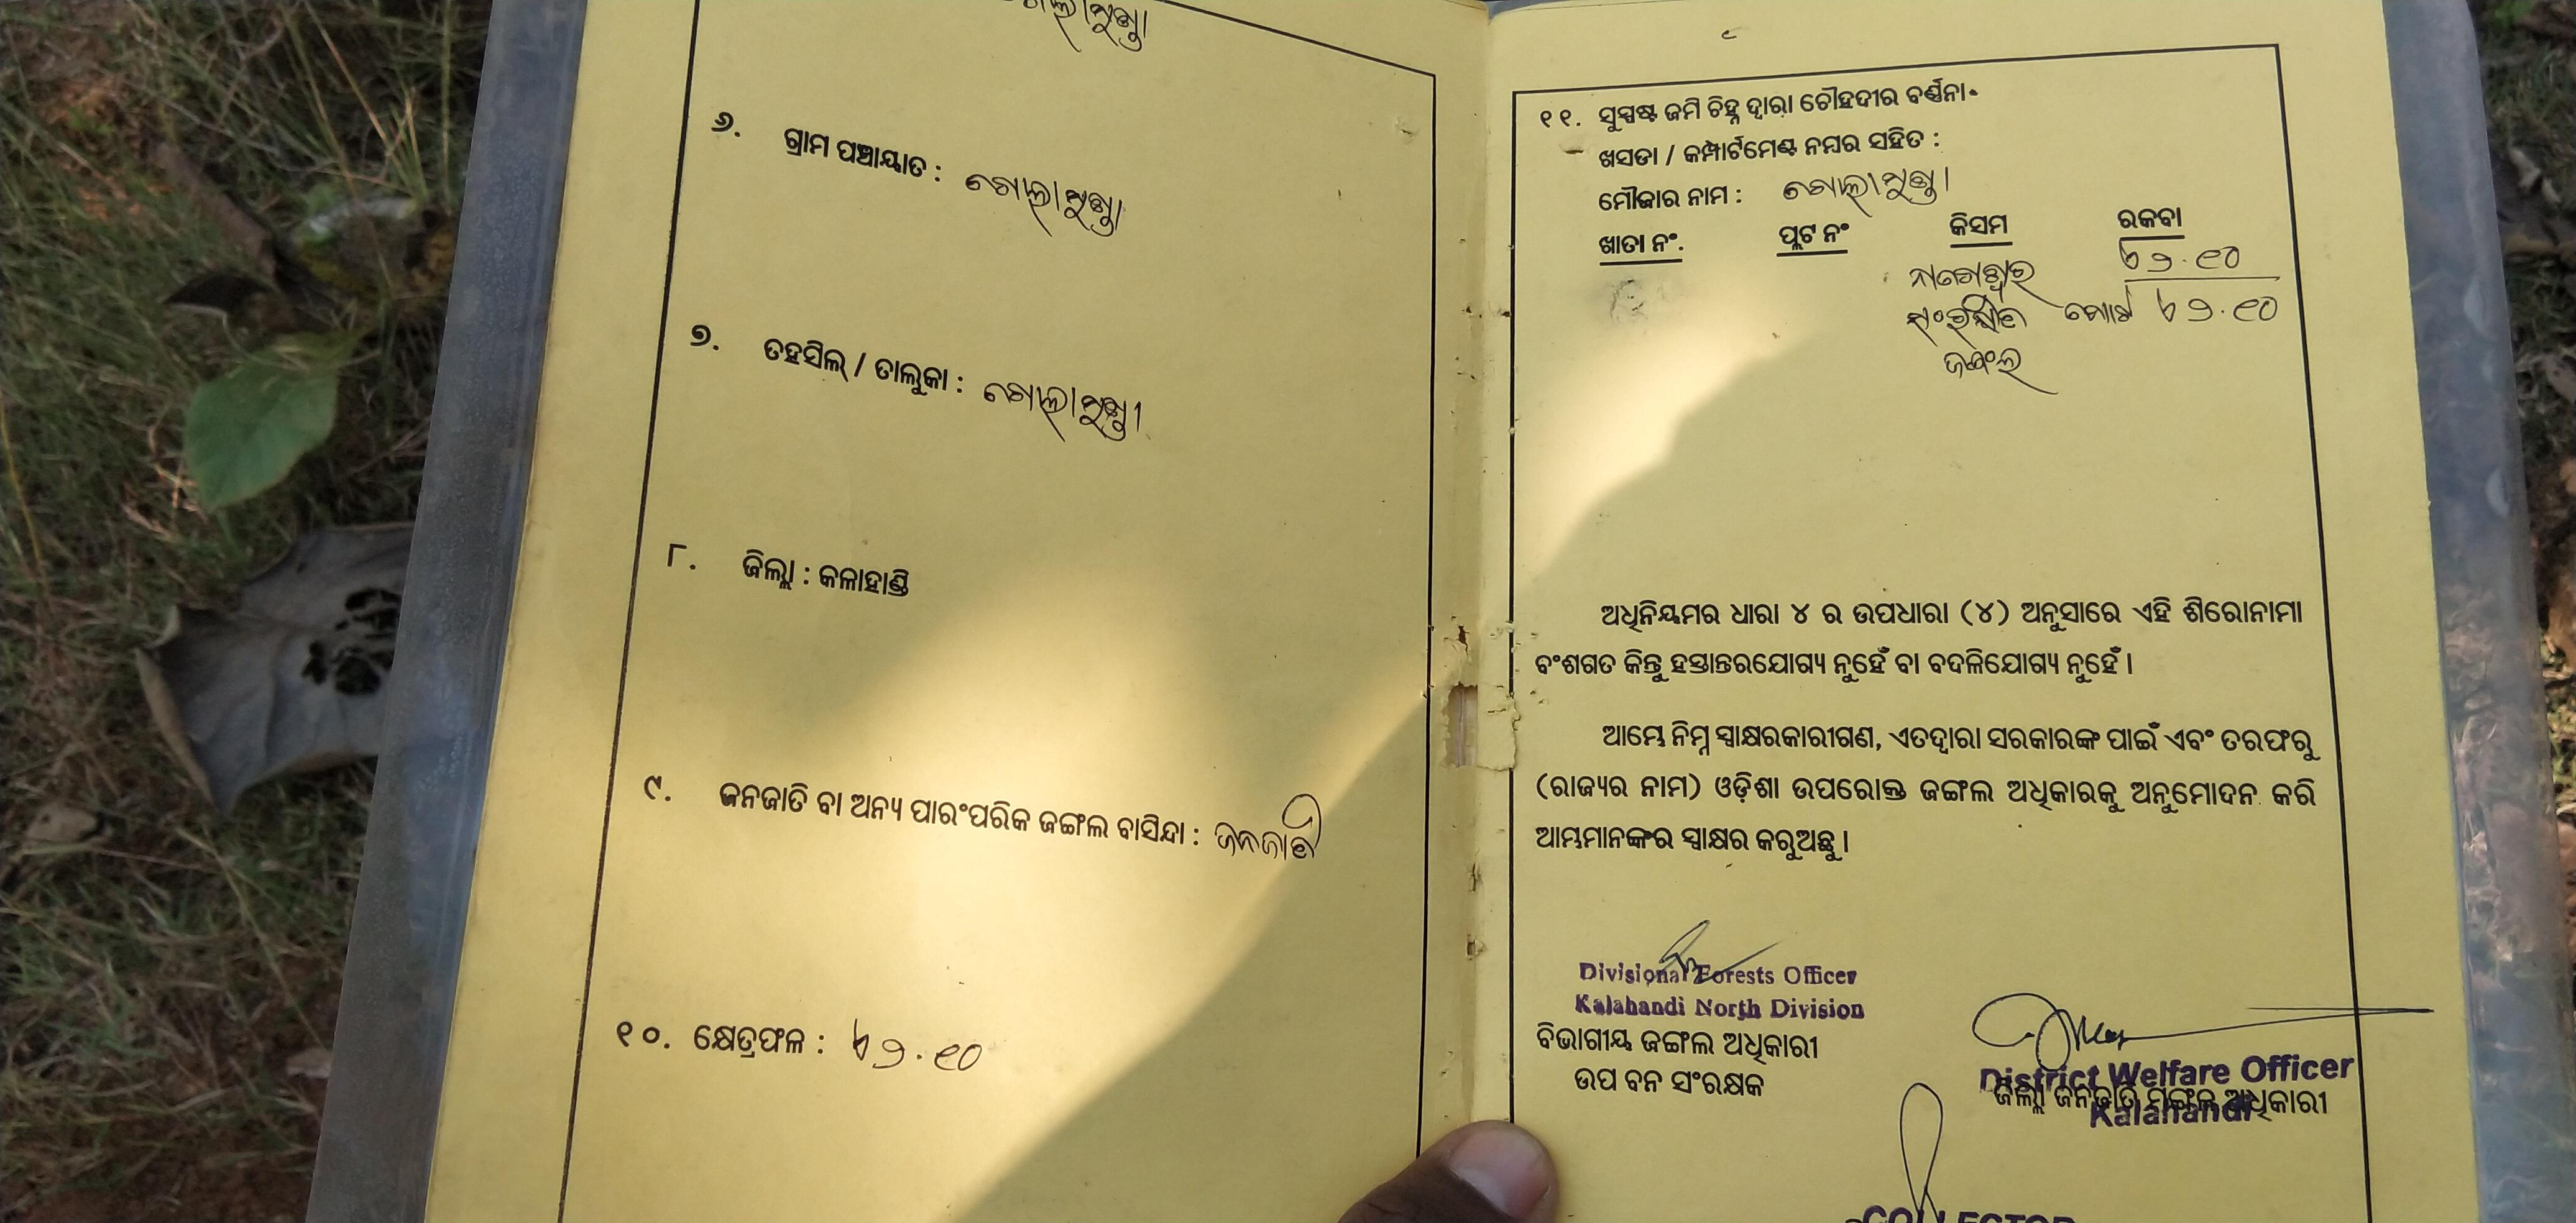 ଗୋଲାମୁଣ୍ଡା
୬. ଗ୍ରାମ ପଞ୍ଚାୟାତ : ଗୋଲାମୁଣ୍ଡା
୭. ତହସିଲ୍ / ତାଲୁକା : ଗୋଲାମୁଣ୍ଡା
୮. ଜିଲ୍ଲା : କଳାହାଣ୍ଡି
୯. ଜନଜାତି ବା ଅନ୍ୟ ପାରଂପରିକ ଜଙ୍ଗଲ ବାସିନ୍ଦା : ଜନଜାତି
୧୦. କ୍ଷେତ୍ରଫଳ :
୧୧. ସୁସ୍ପଷ୍ଟ ଜମି ଚିହ୍ନ ଦ୍ୱାରା ଚୌହଦୀର ବର୍ଣ୍ଣନା
ଖସଡା / କମ୍ପାର୍ଟମେଣ୍ଟ ନମ୍ବର ସହିତ :
ମୌଜାର ନାମ : ଗୋଲାମୁଣ୍ଡା
ଖାତା ନଂ. ପ୍ଲଟ ନଂ କିସମ ରକବା
ସଂରକ୍ଷିତ ମୋଟ
ଜଙ୍ଗଲ
ଅଧିନିୟମର ଧାରା ୪ ର ଉପଧାରା (୪) ଅନୁସାରେ ଏହି ଶିରୋନାମା
ବଂଶଗତ କିନ୍ତୁ ହସ୍ତାନ୍ତରଯୋଗ୍ୟ ନୁହେଁ ବା ବଦଳିଯୋଗ୍ୟ ନୁହେଁ ।
ଆମ୍ଭେ ନିମ୍ନ ସ୍ୱାକ୍ଷରକାରୀଗଣ, ଏତଦ୍ୱାରା ସରକାରଙ୍କ ପାଇଁ ଏବଂ ତରଫରୁ
(ରାଜ୍ୟର ନାମ) ଓଡ଼ିଶା ଉପରୋକ୍ତ ଜଙ୍ଗଲ ଅଧିକାରକୁ ଅନୁମୋଦନ କରି
ଆମ୍ଭମାନଙ୍କର ସ୍ୱାକ୍ଷର କରୁଅଛୁ ।
Divisional Forests Officer
Kalahandi North Division
ବିଭାଗୀୟ ଜଙ୍ଗଲ ଅଧିକାରୀ
ଉପ ବନ ସଂରକ୍ଷକ
District Welfare Officer
ଜିଲ୍ଲା ଜନଜାତି ମଙ୍ଗଳ ଅଧିକାରୀ
Kalahandi
COLLECTOR